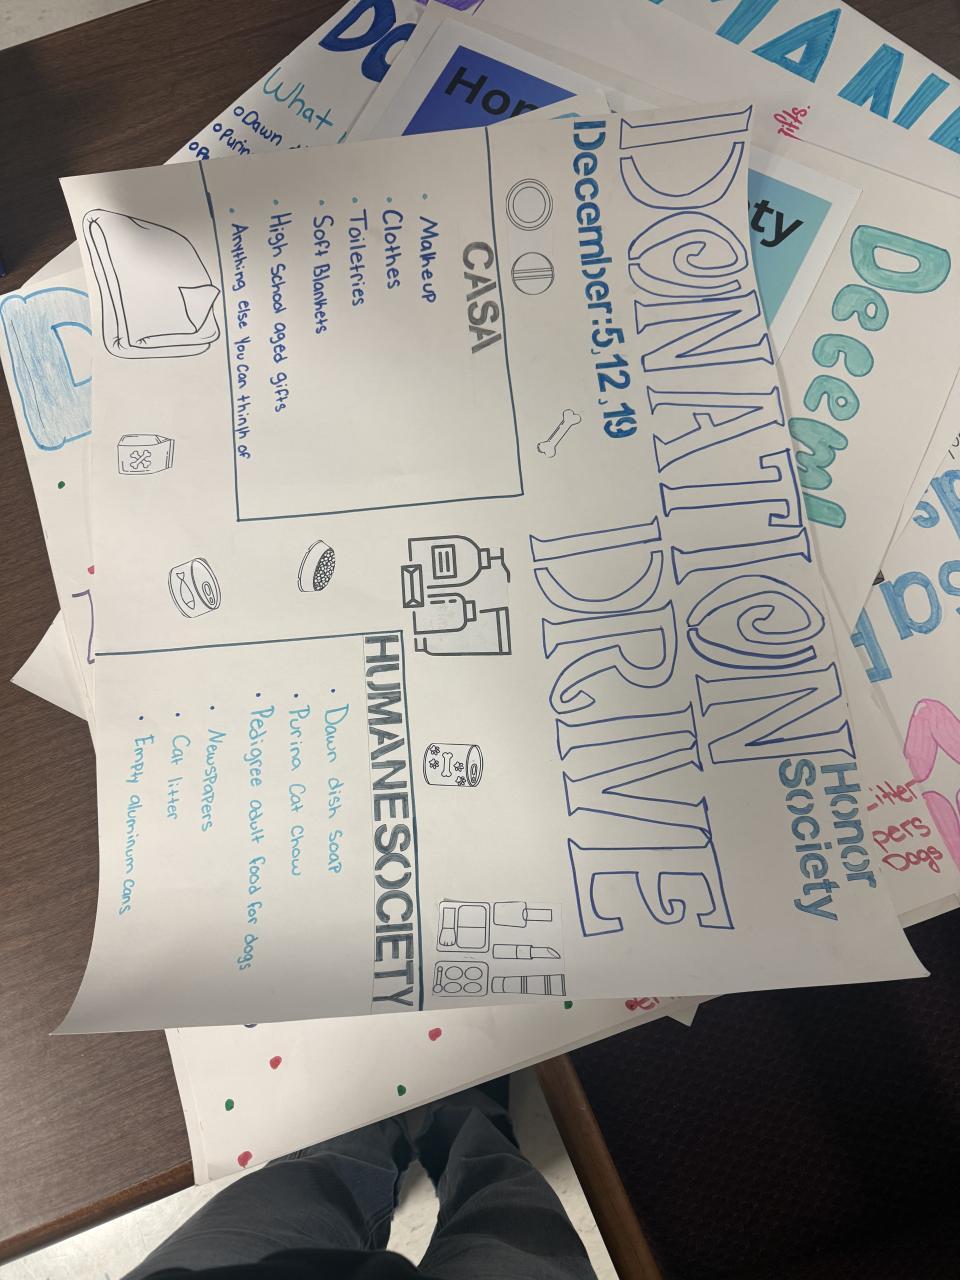 DONATION
DRIVE
Honor
Society
December:5,12,19
CASA
• Makeup
• Clothes
• Toiletries
• Soft Blankets
• High School aged gifts
• Anything else you can think of
HUMANE SOCIETY
• Dawn dish soap
• Purina Cat Chow
• Pedigree adult food for dogs
• Newspapers
• Cat litter
• Empty aluminum cans
What
Dawn
gifts.
pers
Dogs